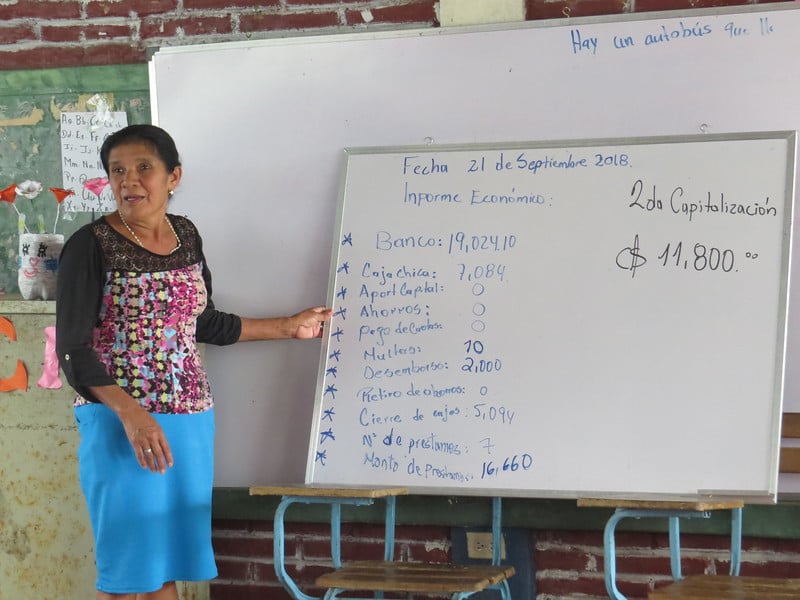 Hay un autobús que
Aa Bb Cc
Fecha 21 de Septiembre 2018.
Informe Económico:
* Banco: 19,024.10
* Caja chica: 7,084.
* Aport Capital: 0
* Ahorros: 0
* Pago de Cuotas: 0
* Multas: 10
* Desembolso: 2,000
* Retiro de ahorros: 0
* Cierre de cajas: 5,094
* N° de prestamos: 7
* Monto de Prestamos: 16,660
2da Capitalización
₡ 11,800.00